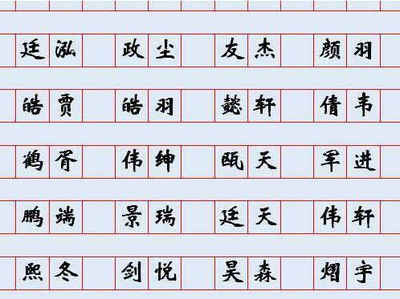 廷泓 政尘 友杰 颜羽
皓贾 皓羽 懿轩 倩韦
鹤胥 伟绅 瓯天 军进
鹏端 景瑞 廷天 伟轩
熙冬 剑悦 昊森 熠宇